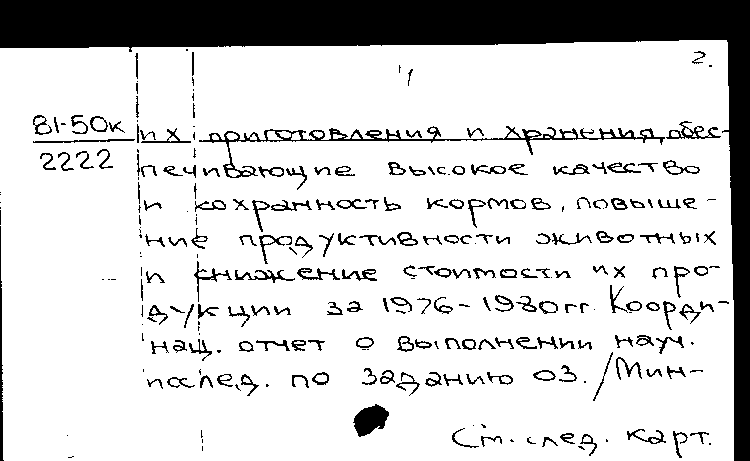 2.
81-50к их приготовления и хранения, обес-
2222 печивающие высокое качество
и сохранность кормов, повыше-
ние продуктивности животных
и снижение стоимости их про-
дукции за 1976-1980гг. Коорди-
нац. отчет о выполнении науч.
исслед. по заданию 03. /Мин-
См. след. карт.